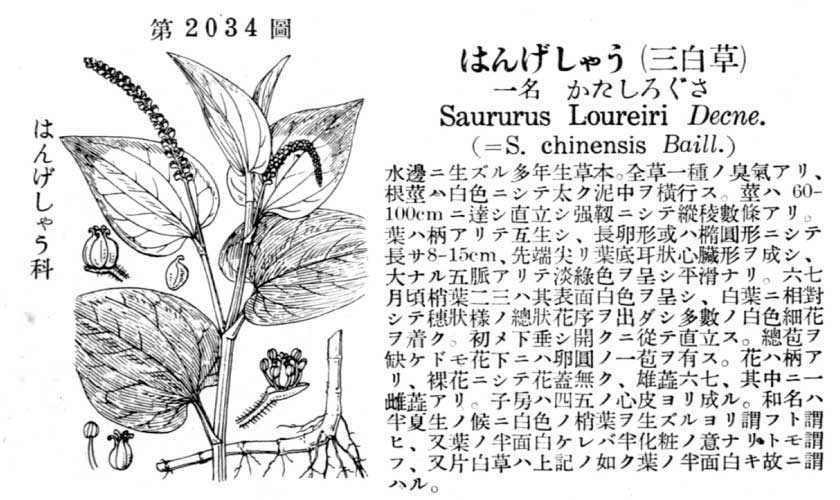 第2034圖
はんげしゃう科
はんげしゃう(三白草)
一名 かたしろぐさ
Saururus Loureiri Decne.
(=S. chinensis Baill.)
水邊ニ生ズル多年生草本。全草一種ノ臭氣アリ、
根莖ハ白色ニシテ太ク泥中ヲ横行ス。莖ハ 60-
100cm ニ達シ直立シ强靱ニシテ縱稜數條アリ。
葉ハ柄アリテ互生シ、長卵形或ハ橢圓形ニシテ
長サ8-15cm、先端尖リ葉底耳狀心臟形ヲ成シ、
大ナル五脈アリテ淡綠色ヲ呈シ平滑ナリ。六七
月頃梢葉二三ハ其表面白色ヲ呈シ、白葉ニ相對
シテ穗狀樣ノ總狀花序ヲ出ダシ多數ノ白色細花
ヲ着ク。初メ下垂シ開クニ從テ直立ス。總苞ヲ
缺ケドモ花下ニハ卵圓ノ一苞ヲ有ス。花ハ柄ア
リ、裸花ニシテ花蓋無ク、雄蕋六七、其中ニ一
雌蕋アリ。子房ハ四五ノ心皮ヨリ成ル。和名ハ
半夏生ノ候ニ白色ノ梢葉ヲ生ズルヨリ謂フト謂
ヒ、又葉ノ半面白ケレバ半化粧ノ意ナリトモ謂
フ、又片白草ハ上記ノ如ク葉ノ半面白キ故ニ謂
ハル。